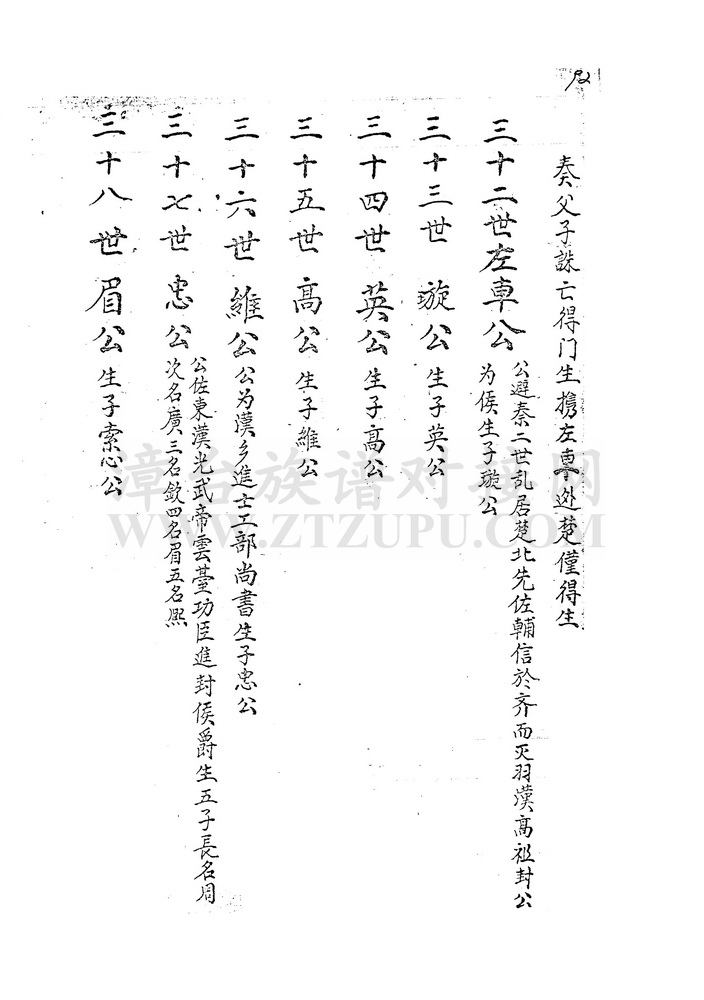 92
奏父子誅亡得门生携左車逃楚僅得生
三十二世左車公
公避秦二世乱居楚北先佐輔信於齐而灭羽漢高祖封公
为侯生子璇公
三十三世 璇公生子英公
三十四世 英公生子高公
三十五世 高公生子維公
三十六世 維公公为漢乡進士工部尚書生子忠公
三十七世 忠公
公佐東漢光武帝雲臺功臣進封侯爵生五子長名周
次名廣三名欽四名眉五名熙
三十八世 眉公生子索公
漳台族谱对接网
WWW.ZTZUPU.COM